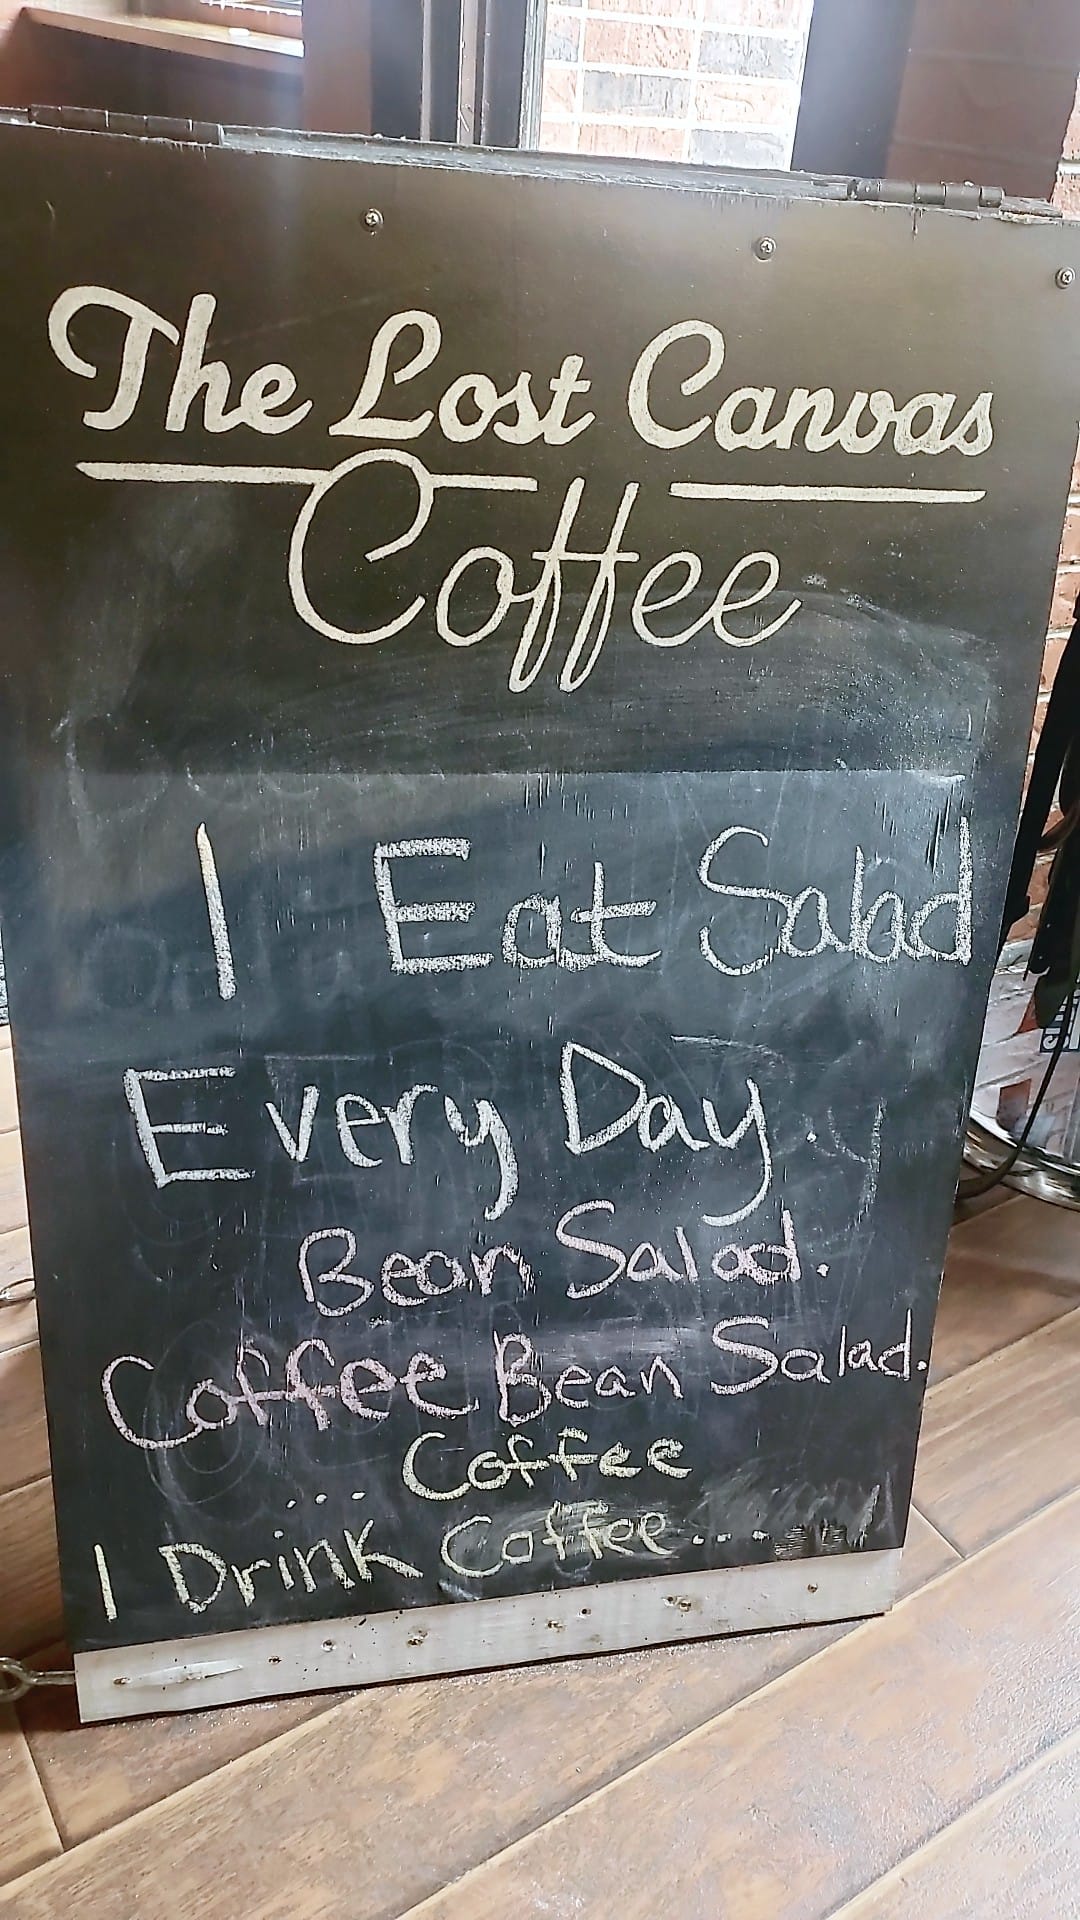 The Lost Canvas
Coffee
I Eat Salad
Every Day.
Bean Salad.
Coffee Bean Salad.
... Coffee
I Drink Coffee...